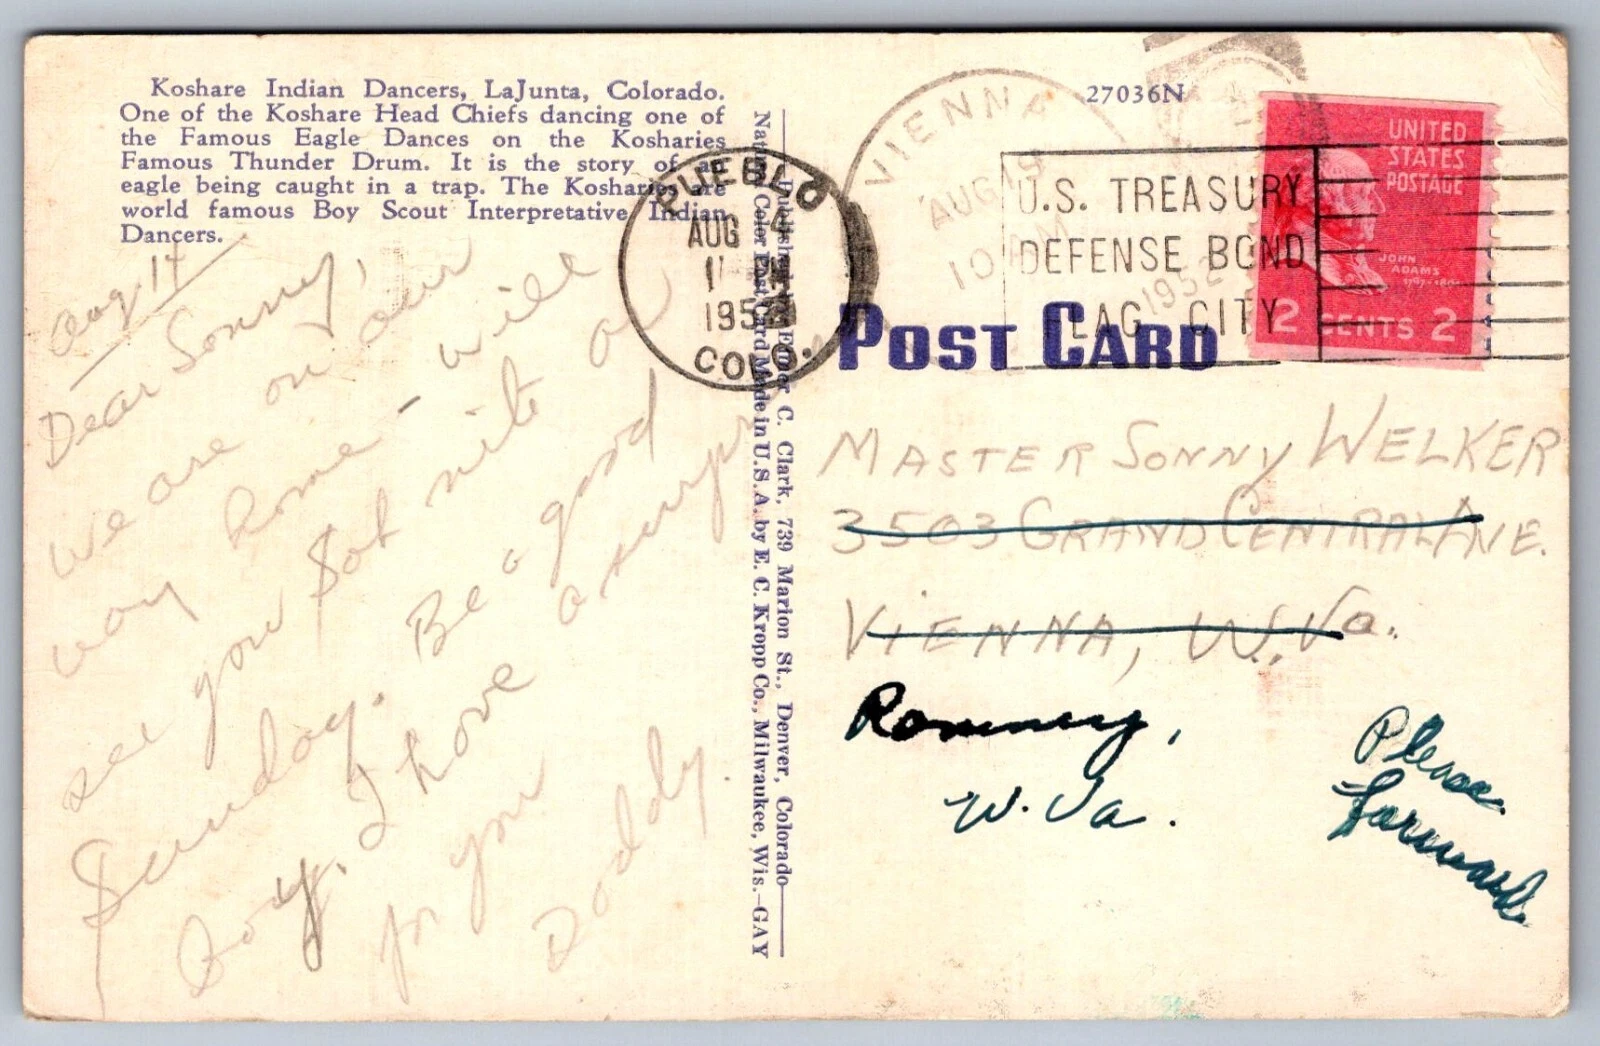 Koshare Indian Dancers, LaJunta, Colorado.
One of the Koshare Head Chiefs dancing one of
the Famous Eagle Dances on the Kosharies
Famous Thunder Drum. It is the story of an
eagle being caught in a trap. The Kosharies are
world famous Boy Scout Interpretative Indian
Dancers.
Aug. 14
Dear Sonny,
We are on our
way home - will
see you Sat nite or
Sunday. Be a good
boy. I have a surprise
for you
Daddy.
Published by Elmer C. Clark, 739 Marion St., Denver, Colorado
National Color Post Card Made in U.S.A. by E. C. Kropp Co., Milwaukee, Wis.-GAY
PUEBLO
AUG 14
1952
COLO.
VIENNA
AUG 19
10 AM
1952
27036N
U.S. TREASURY
DEFENSE BOND
FLAG CITY
UNITED
STATES
POSTAGE
JOHN
ADAMS
2 CENTS 2
POST CARD
MASTER SONNY WELKER
3503 GRAND CENTRAL AVE.
VIENNA, W. Va.
Romney,
W. Va.
Please
forward